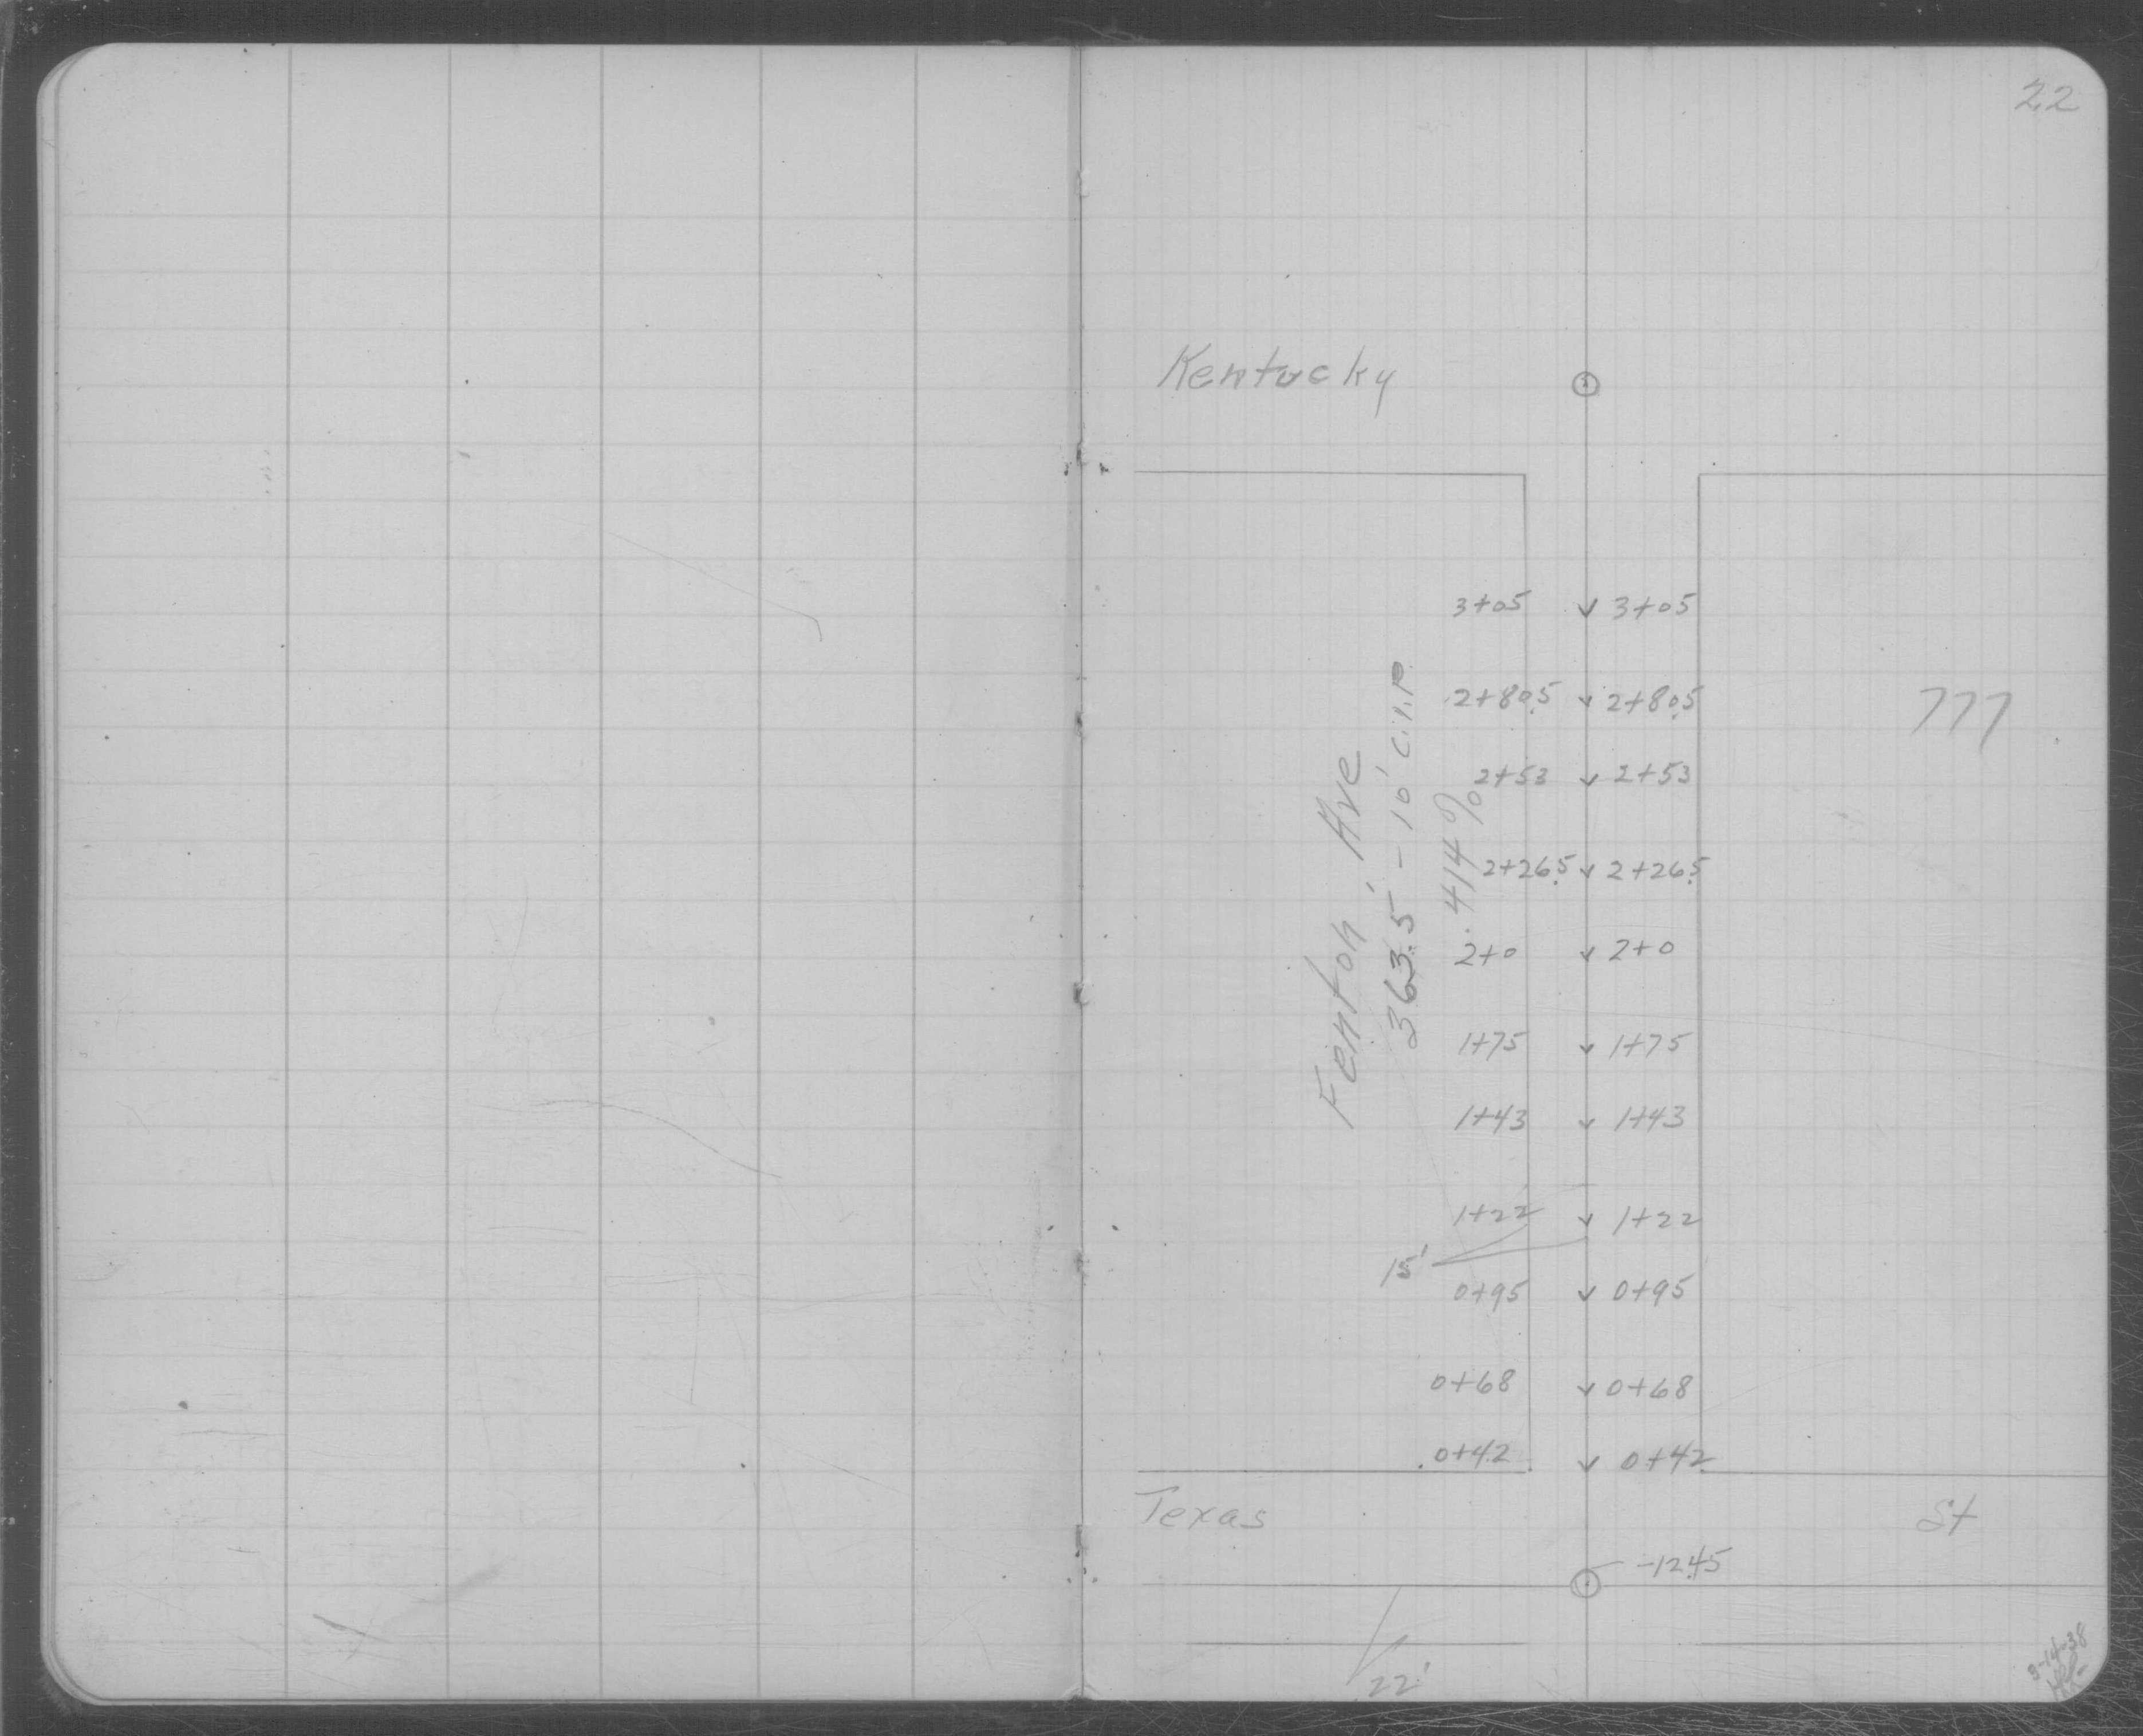 22
Kentucky
3+05 3+05
2+80.5 2+80.5
777
2+53 2+53
2+26.5 2+26.5
2+0 2+0
1+75 1+75
1+43 1+43
1+22 1+22
15'
0+95 0+95
0+68 0+68
0+42 0+42
Fenton Ave
363.5' - 10' C.I.P.
.414%
Texas St
-12.45
22'
3-14-38